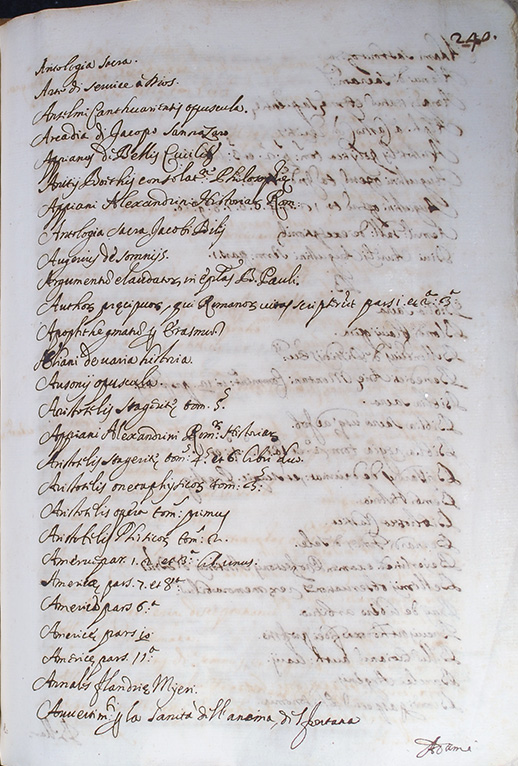 240.
Antologia Sacra.
Arte di servire à Dios.
Anselmi Canthuariensis opuscula.
Arcadia di Jacopo Sannazaro
Appianus di Bellis Civilib
Anitij Boithij consola Philosophię
Appiani Alexandrini Historiar Rom:
Antologia Sacra Jacobi Bilij
Augenius de somnijs.
Argumenta claudator in ep̃las D. Pauli.
Authores pręcipuos, qui Romanor vitas scripserũt pars i. et 2. 3.
Apophthegmatũ Erasmus
Aeliani de varia historia.
Ausonij opuscula.
Aristotelis Stagiritę tom. 5.
Appiani Alexandrini Rom: Historiar
Aristotelis Stageritę tom: 4. et 6. libri duo.
Aristotelis metaphysicor tom: 3.
Aristotelis opera tom: primus
Aristotelis Phisicor tom: 2.
Americę par. 1. 2. et 3.a lib. unus.
Americę pars. 7. et 8.a
Americę pars 6.a
Americę pars 10
Americę pars. 11.a
Annales flandrię Mejeri.
la Sanita dell anima, di fontana
Adami